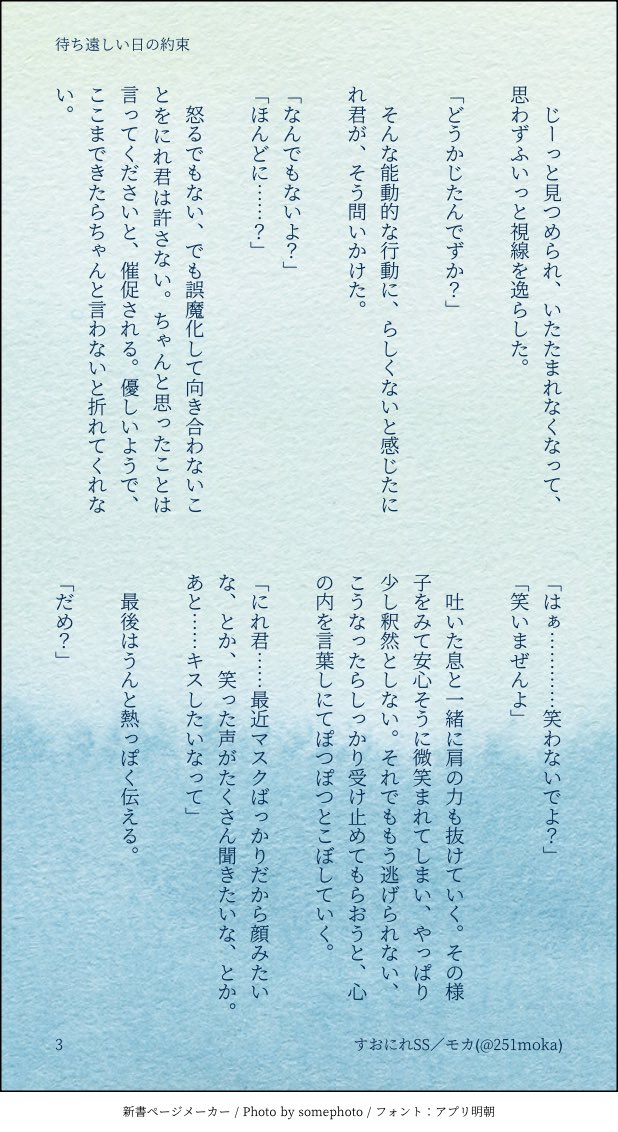 待ち遠しい日の約束
じーっと見つめられ、いたたまれなくなって、
思わずふいっと視線を逸らした。
「どうかじたんでずか？」
そんな能動的な行動に、らしくないと感じたに
れ君が、そう問いかけた。
「なんでもないよ？」
「ほんどに……？」
怒るでもない、でも誤魔化して向き合わないこ
とをにれ君は許さない。ちゃんと思ったことは
言ってくださいと、催促される。優しいようで、
ここまできたらちゃんと言わないと折れてくれな
い。
「はぁ…………笑わないでよ？」
「笑いまぜんよ」
吐いた息と一緒に肩の力も抜けていく。その様
子をみて安心そうに微笑まれてしまい、やっぱり
少し釈然としない。それでももう逃げられない、
こうなったらしっかり受け止めてもらおうと、心
の内を言葉しにてぽつぽつとこぼしていく。
「にれ君……最近マスクばっかりだから顔みたい
な、とか、笑った声がたくさん聞きたいな、とか。
あと……キスしたいなって」
最後はうんと熱っぽく伝える。
「だめ？」
3
すおにれSS／モカ(@251moka)
新書ページメーカー / Photo by somephoto / フォント：アプリ明朝